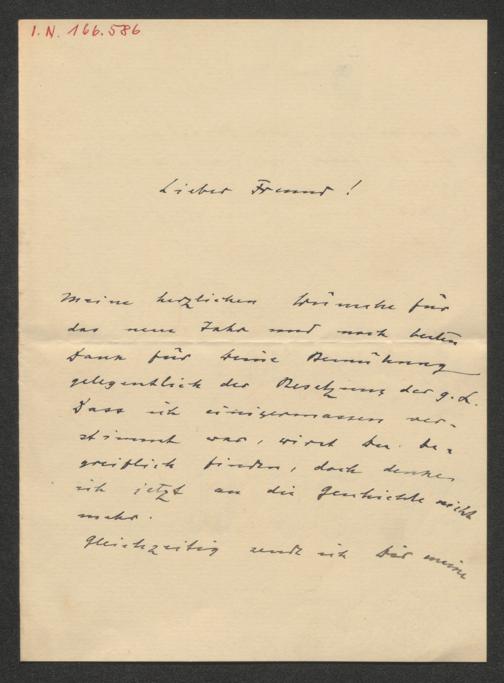 I.N. 166.586
Lieber Freund!
Meine herzlichen Wünsche für
das neue Jahr und noch besten
Dank für Deine Bemühung
gelegentlich der Besetzung der g. L.
Dass ich einigermassen ver-
stimmt war, wirst Du be-
greiflich finden, doch denke
ich jetzt an die Geschichte nicht
mehr.
Gleichzeitig sende ich Dir meine